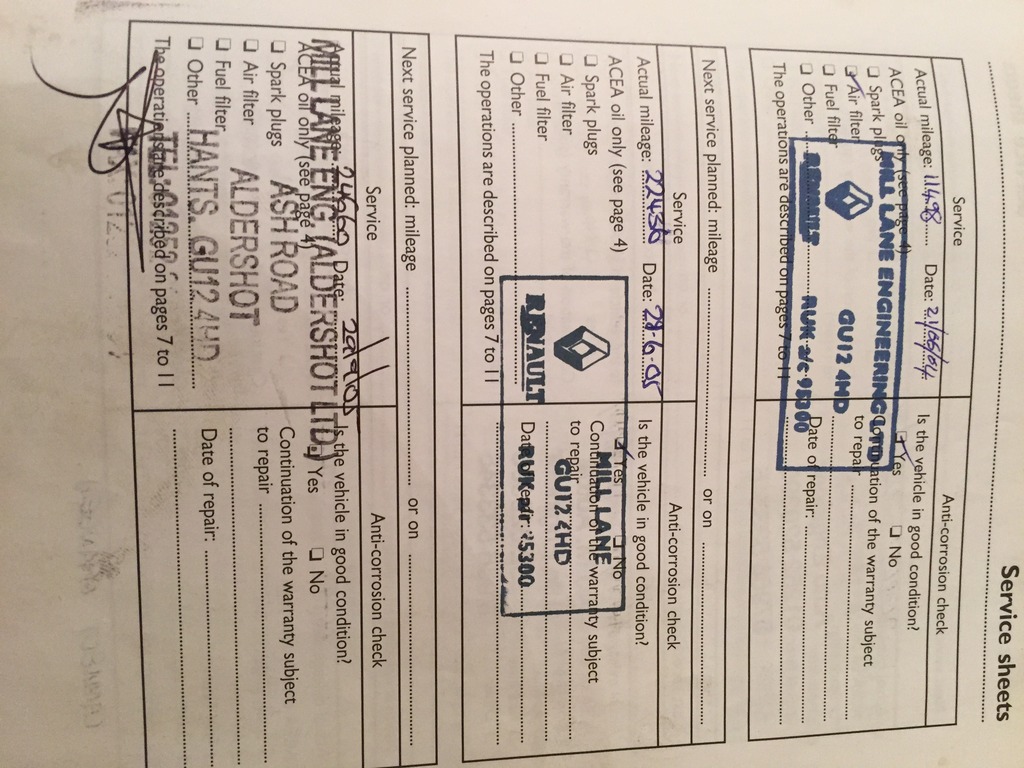 Service sheets
Service
Anti-corrosion check
Actual mileage: 11498 Date: 21/05/04
Is the vehicle in good condition?
ACEA oil only (see page 4)
☑ Yes ☐ No
☐ Spark plugs
Continuation of the warranty subject
☑ Air filter
to repair
☐ Fuel filter
Date of repair:
☐ Other
The operations are described on pages 7 to 11
MILL LANE ENGINEERING LTD
GU12 4HD
RENAULT RUK a/c 95300
Next service planned: mileage or on
Service
Anti-corrosion check
Actual mileage: 22430 Date: 28-6-05
Is the vehicle in good condition?
ACEA oil only (see page 4)
☑ Yes ☐ No
☐ Spark plugs
Continuation of the warranty subject
☐ Air filter
to repair
☐ Fuel filter
Date of repair:
☐ Other
The operations are described on pages 7 to 11
MILL LANE
GU12 4HD
RENAULT
Next service planned: mileage or on
Service
Anti-corrosion check
Actual mileage: Date:
Is the vehicle in good condition?
ACEA oil only (see page 4)
☐ Yes ☐ No
☐ Spark plugs
Continuation of the warranty subject
☐ Air filter
to repair
☐ Fuel filter
Date of repair:
☐ Other
The operations are described on pages 7 to 11
MILL LANE ENG. (ALDERSHOT LTD.)
ASH ROAD
ALDERSHOT
HANTS. GU12 4HD